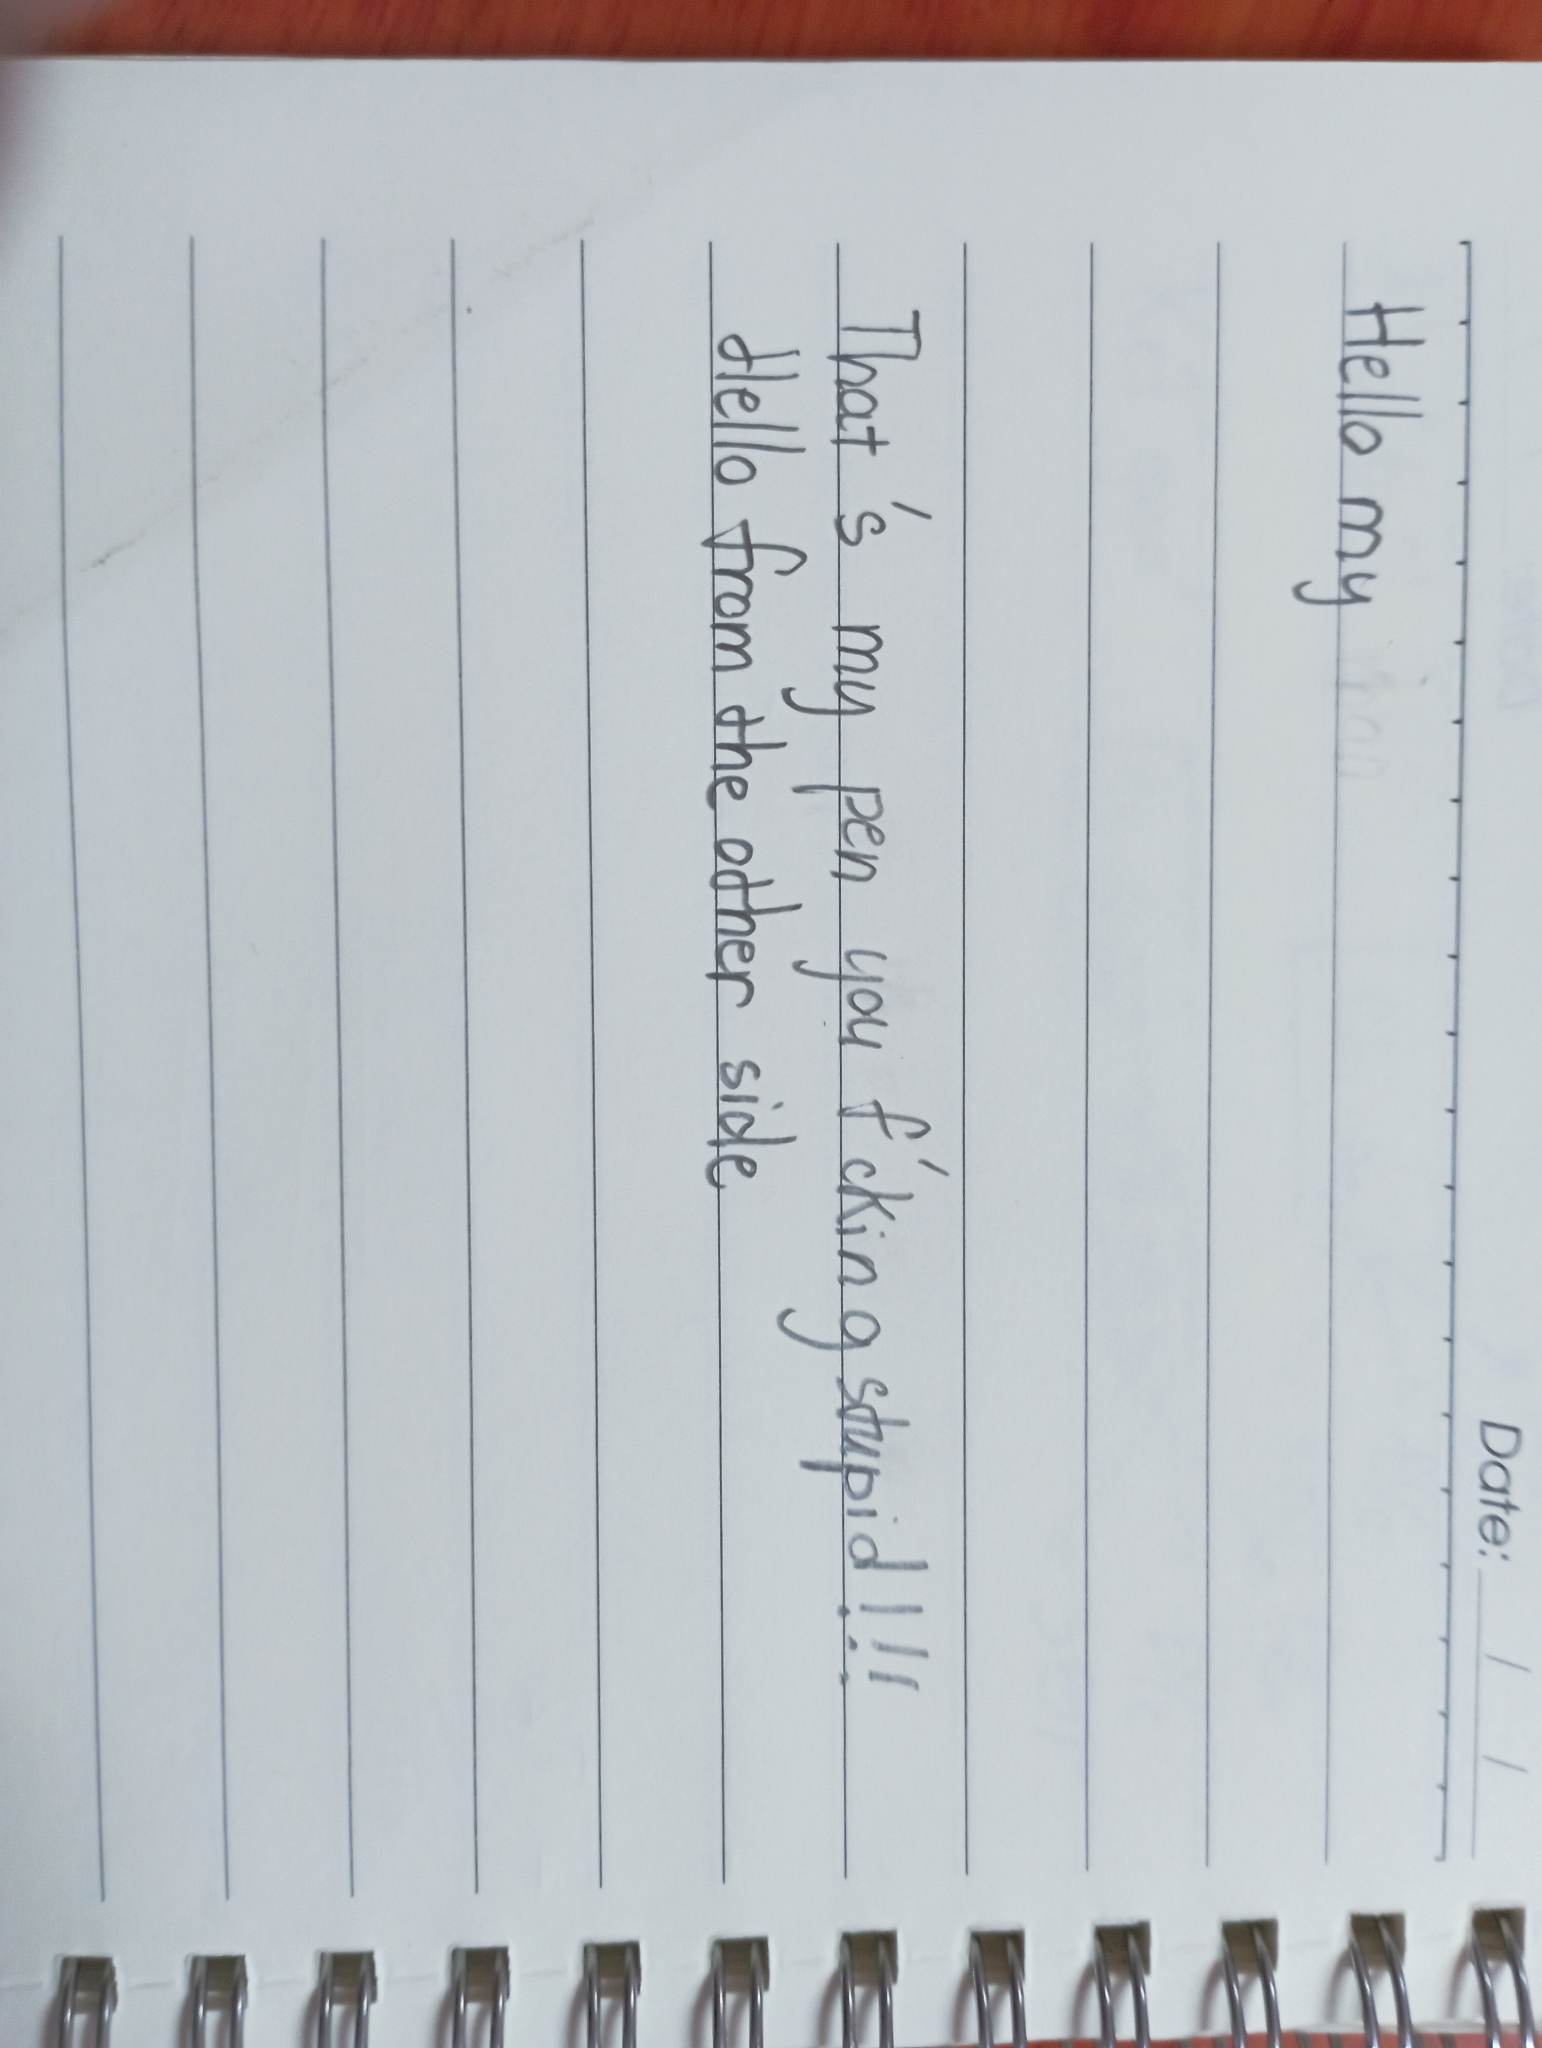 Date: / /
Hello my
That's my pen you f'cking stupid!!!
Hello from the other side